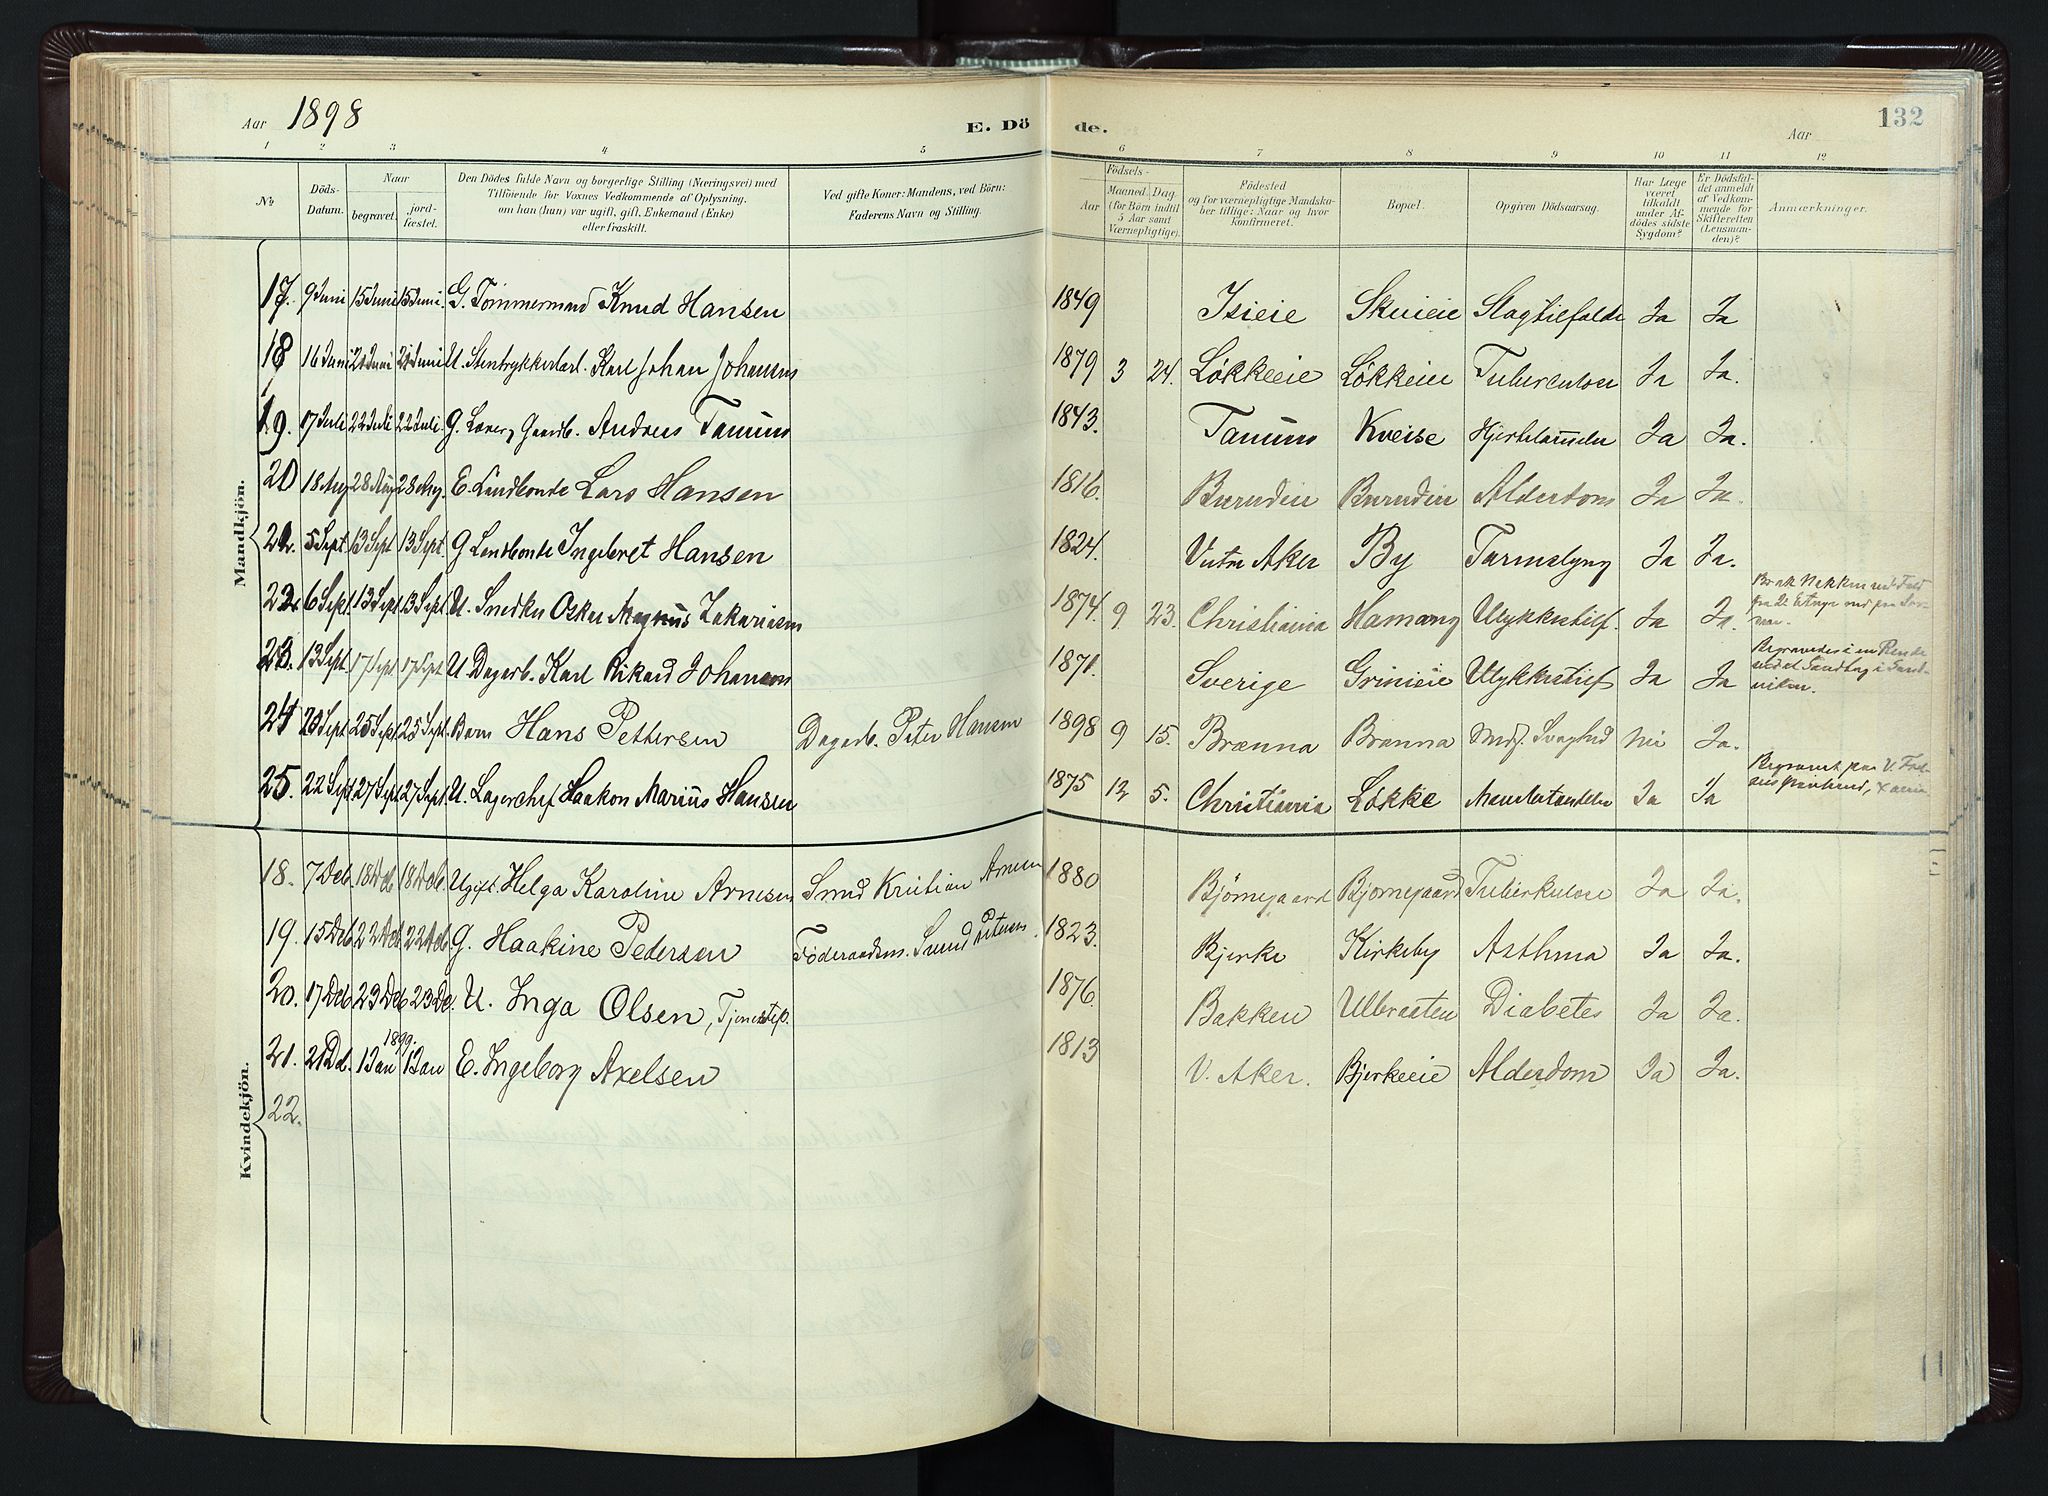 Aar 1898 E. Dö de. Aar 132
1 2 3 4 5 6 7 8 9 10 11 12
№ Döds-Datum. Naar begravet. jordfæstet. Den Dödes fulde Navn og borgerlige Stilling (Næringsvei) med Tilföiende for Voxnes Vedkommende af Oplysning, om han (hun) var ugift, gift, Enkemand (Enke) eller fraskilt. Ved gifte Koner: Mandens, ved Börn: Faderens Navn og Stilling. Födsels- Aar Maaned Dag (for Börn indtil 5 Aar samt Værnepligtige). Födested og for værnepligtige Mandskaber tillige: Naar og hvor konfirmeret. Bopæl. Opgiven Dödsaarsag. Har Læge været tilkaldt under Afdödes sidste Sygdom? Er Dödsfaldet anmeldt af Vedkommende for Skifteretten (Lensmanden)? Anmærkninger.
Mandkjön.
17. 9 Juni 15 Juni 15 Juni. G. Tömmermand Knud Hansen 1849 Isieie Skuieie Slagtilfælde Ja Ja
18 16 Juni 21 Juni 21 Juni U. Stentrykkerlærl. Karl Johan Johansen 1879 3 24. Løkkeeie Løkkeeie Tuberculose Ja Ja.
19. 17 Juli 22 Juli 22 Juli. G. Gaardb. Andreas Tanum 1843. Tanum Kveise Hjertelammelse Ja Ja.
20 18 Aug 28 Aug 28 Aug. E. Landbonde Lars Hansen 1816. Burudeie Burudeie Alderdom Ja Ja.
21. 5 Sept 13 Sept 13 Sept G Landbonde Ingebret Hansen 1824. Vestre Aker By Tarmslyng Ja Ja.
22. 6 Sept. 13 Sept 13 Sept U. Snedker Oskar Magnus Zakariasen 1874. 9. 23. Christiania Hamang Ulykkestilf. Ja Ja. Brak Nakken ved Fald fra 2t Etage ned paa
23. 13 Sept. 17 Sept 17 Sept U Dagarb. Karl Rikard Johansen 1871. Sverige Grinieie Ulykkestilf Ja Ja Begravedes i en Rende ved et Sandtag i Sandviken.
24 20 Sept 25 Sept 25 Sept. Barn Hans Pettersen Dagarb. Peter Hansen 1898 9 15. Brænna Brænna Medf. Svaghed Nei Ja.
25. 22 Sept 27 Sept 27 Sept. U. Lagerchef Haakon Marius Hansen 1875 12 5. Christiania Løkke Ja Ja Begravet paa V.
Kvindekjön.
18. 7 Deb. 18 Deb 18 Deb. Ugift. Helga Karoline Arnesen Smed Kristian Arnesen 1880 Bjørnegaard Bjørnegaard Tuberkulose Ja Ja.
19. 15 Deb 22 Deb 22 Deb. G. Haakine Pedersen Föderaadsm. Svend Petersen. 1823. Bjerke Kirkeby Asthma Ja Ja.
20. 17 Deb 23 Deb 23 De. U. Inga Olsen, Tjenestep. 1876. Bakken Ulleraasen Diabetes Ja Ja.
21. 21 D. 1 Jan 1899. 1 Jan E. Ingeborg Axelsen 1813 V. Aker. Bjerkeeie Alderdom Ja Ja.
22.